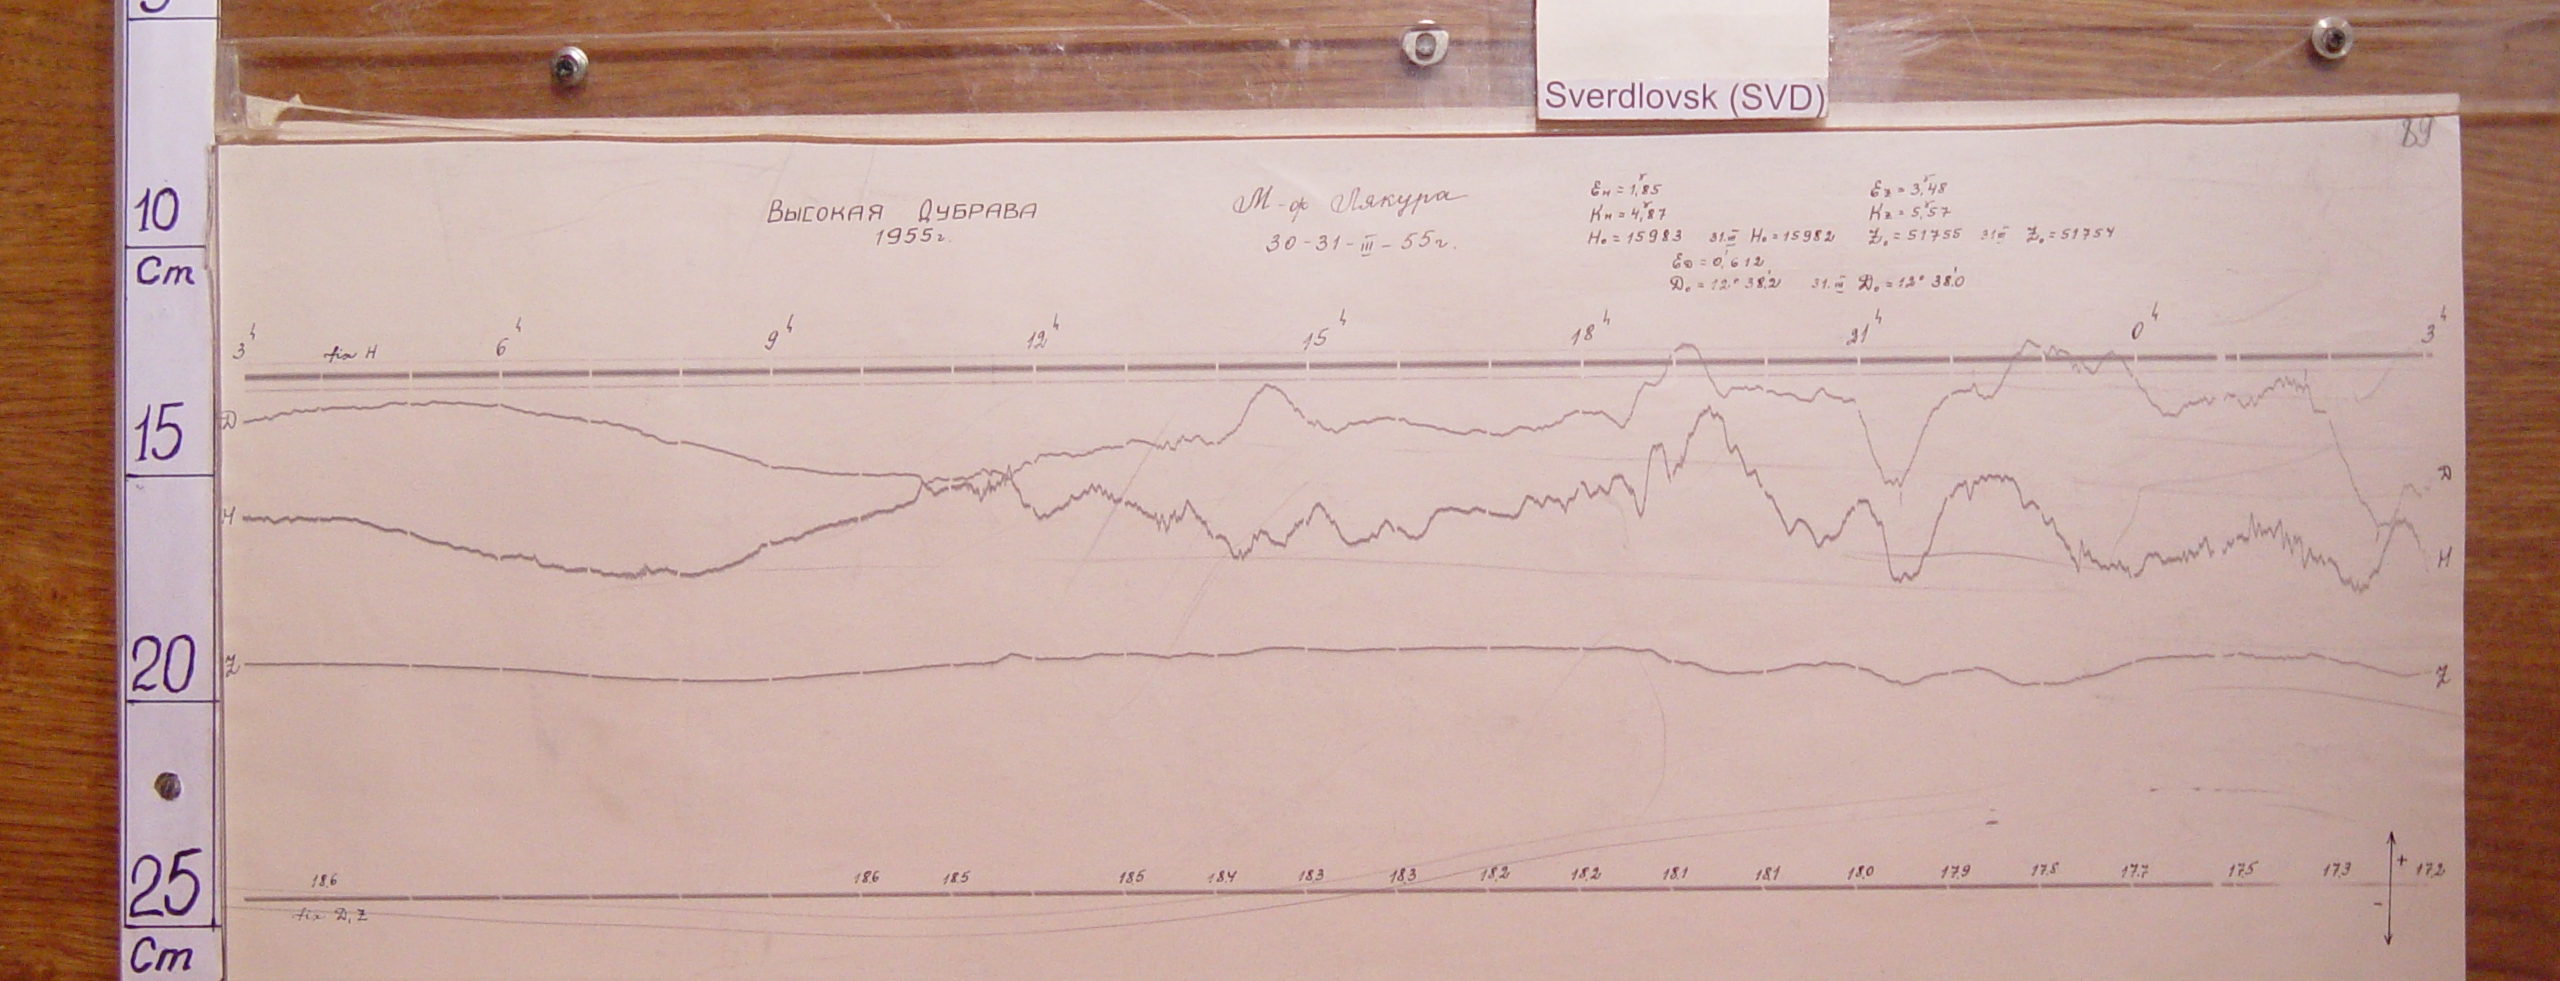 Sverdlovsk (SVD)
89
10
Cm
15
20
25
Cm
Высокая Дубрава
1955г.
М-ф Лякура
30-31-III-55г.
Eн = 1,85
Kн = 4,87
H₀ = 15983 31.III H₀ = 15982
Ez = 3,48
Kz = 5,57
Z₀ = 51755 31.III Z₀ = 51754
ED = 0,612
D₀ = 12° 38,2 31.III D₀ = 12° 38,0
3ч 6ч 9ч 12ч 15ч 18ч 21ч 0ч 3ч
fix H
D
H
Z
D
H
Z
18,6 18,6 18,5 18,5 18,4 18,3 18,3 18,2 18,2 18,1 18,1 18,0 17,9 17,8 17,7 17,5 17,3 17,2
fix D, Z
+
-